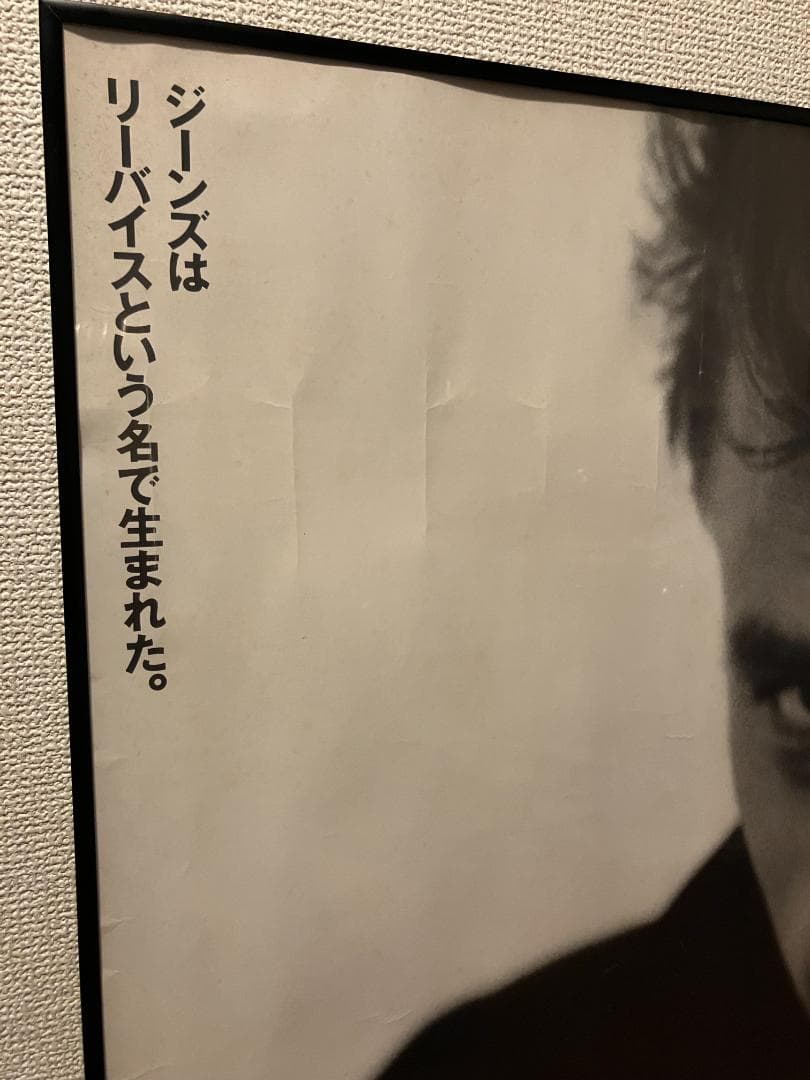 ジーンズは
リーバイスという名で生まれた。